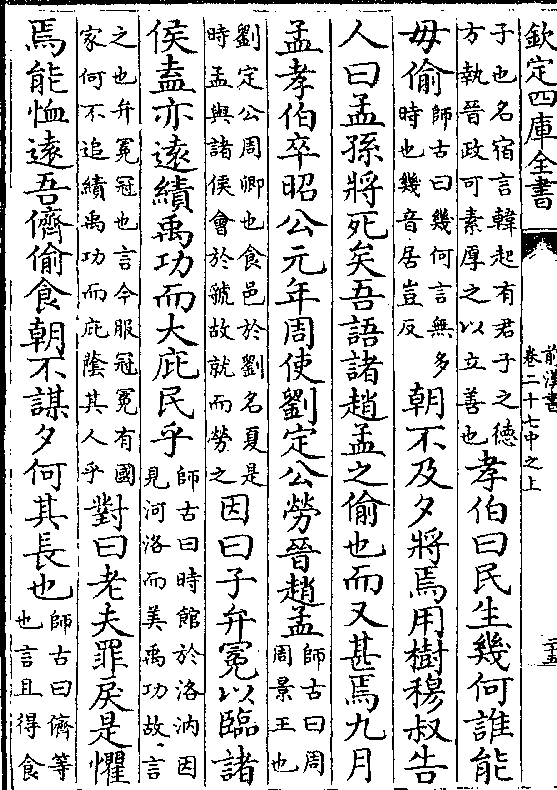 欽定四庫全書
前漢書
卷二十七中之上
二十五
子也名宿言韓起有君子之德
方執晉政可素厚之以立善也
孝伯曰民生幾何誰能
毋偷
師古曰幾何言無多
時也幾音居豈反
朝不及夕將焉用樹穆叔告
人曰孟孫將死矣吾語諸趙孟之偷也而又甚焉九月
孟孝伯卒昭公元年周使劉定公勞晉趙孟
師古曰周
周景王也
劉定公周卿也食邑於劉名夏是
時孟與諸侯會於虢故就而勞之
因曰子弁冕以臨諸
侯盍亦遠績禹功而大庇民乎
師古曰時館於洛汭因
見河洛而美禹功故言
之也弁冕冠也言今服冠冕有國
家何不追績禹功而庇䕃其人乎
對曰老夫罪戾是懼
焉能恤遠吾儕偷食朝不謀夕何其長也
師古曰儕等
也言且得食